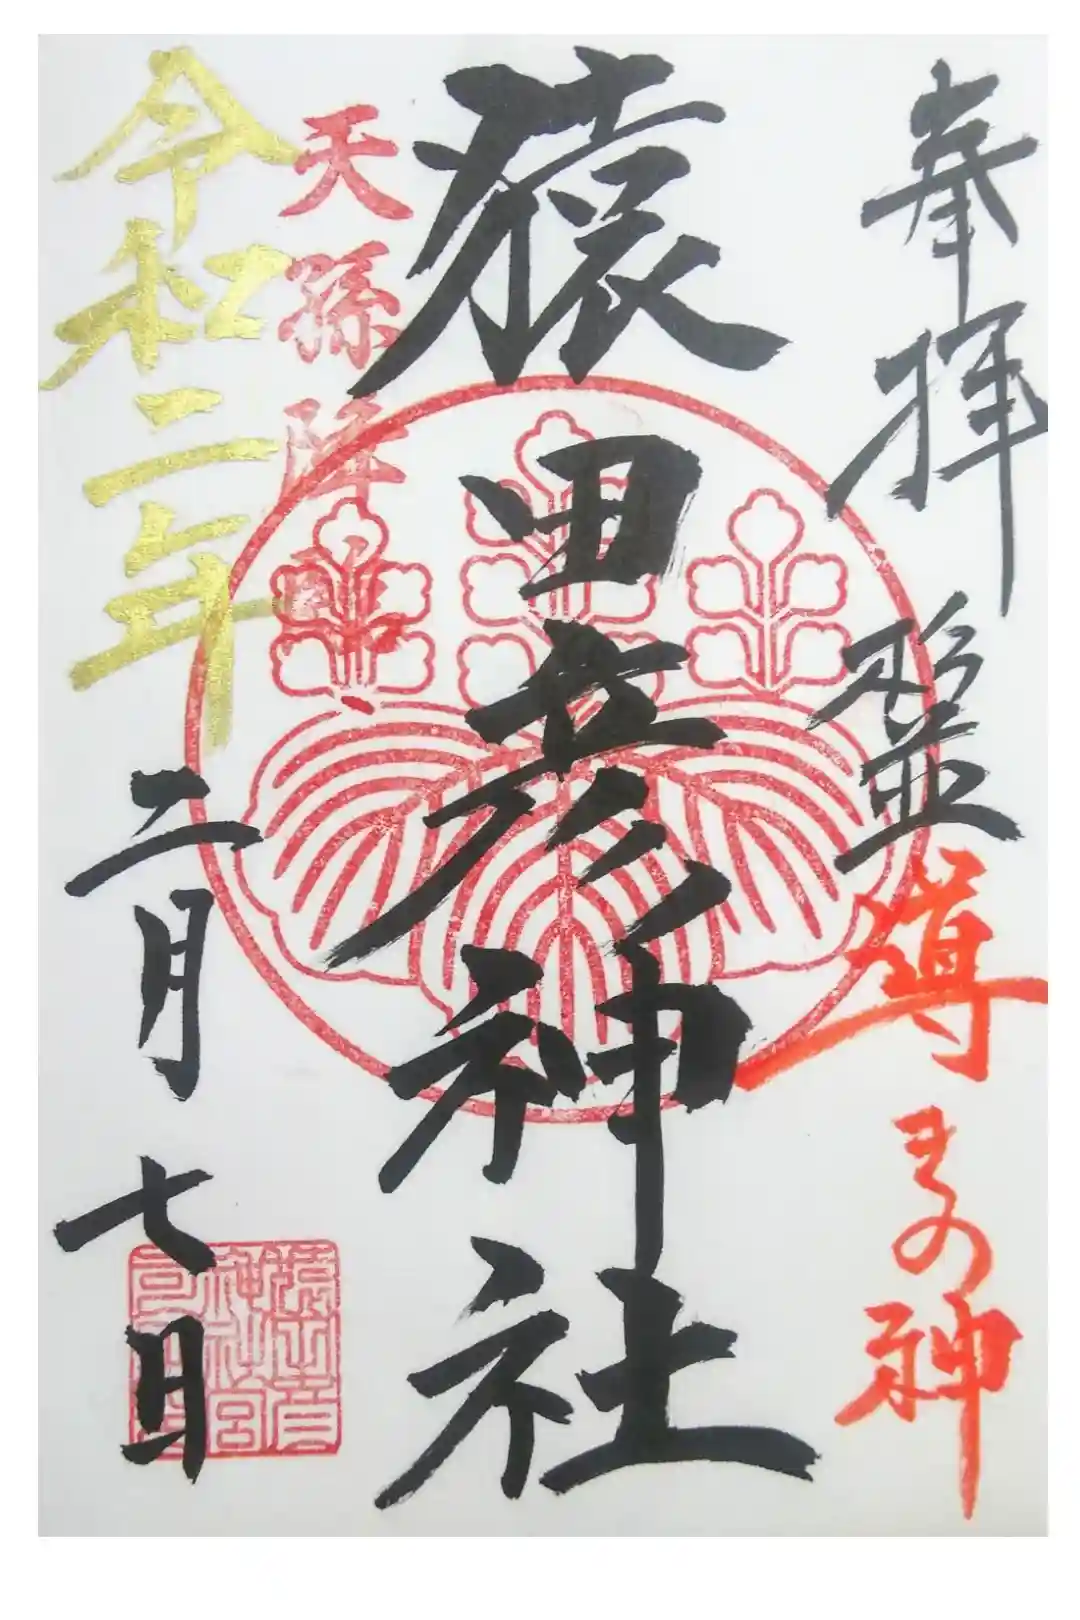 奉拝
導きの神
猿田彦神社
天孫降臨
令和二年二月七日
猿田彦
神社宮
司之印